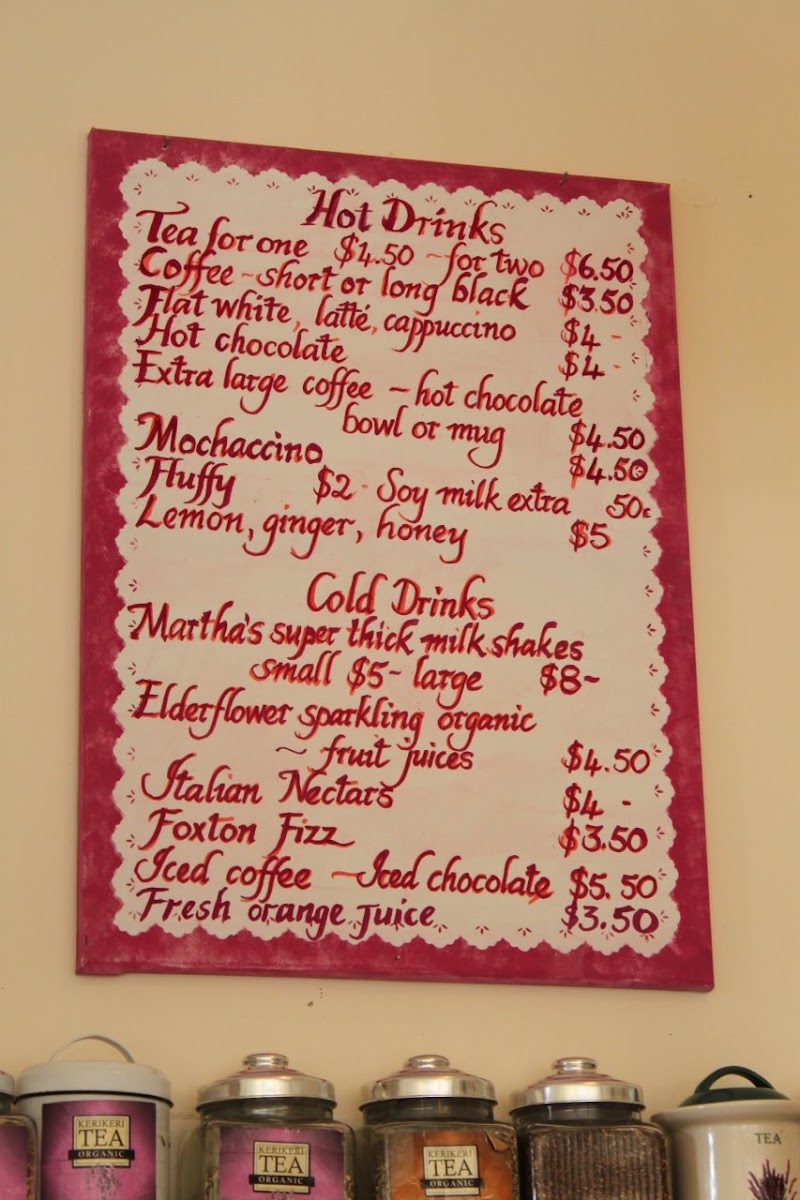 Hot Drinks
Tea for one $4.50 ~ for two $6.50
Coffee ~ short or long black $3.50
Flat white, latté, cappuccino $4 -
Hot chocolate $4 -
Extra large coffee ~ hot chocolate
bowl or mug $4.50
Mochaccino $4.50
Fluffy $2 - Soy milk extra 50c
Lemon, ginger, honey $5
Cold Drinks
Martha's super thick milkshakes
small $5 - large $8 ~
Elderflower sparkling organic
~ fruit juices $4.50
Italian Nectars $4 -
Foxton Fizz $3.50
Iced coffee ~ Iced chocolate $5.50
Fresh orange juice $3.50
KERIKERI
TEA
ORGANIC
KERIKERI
TEA
ORGANIC
KERIKERI
TEA
ORGANIC
TEA